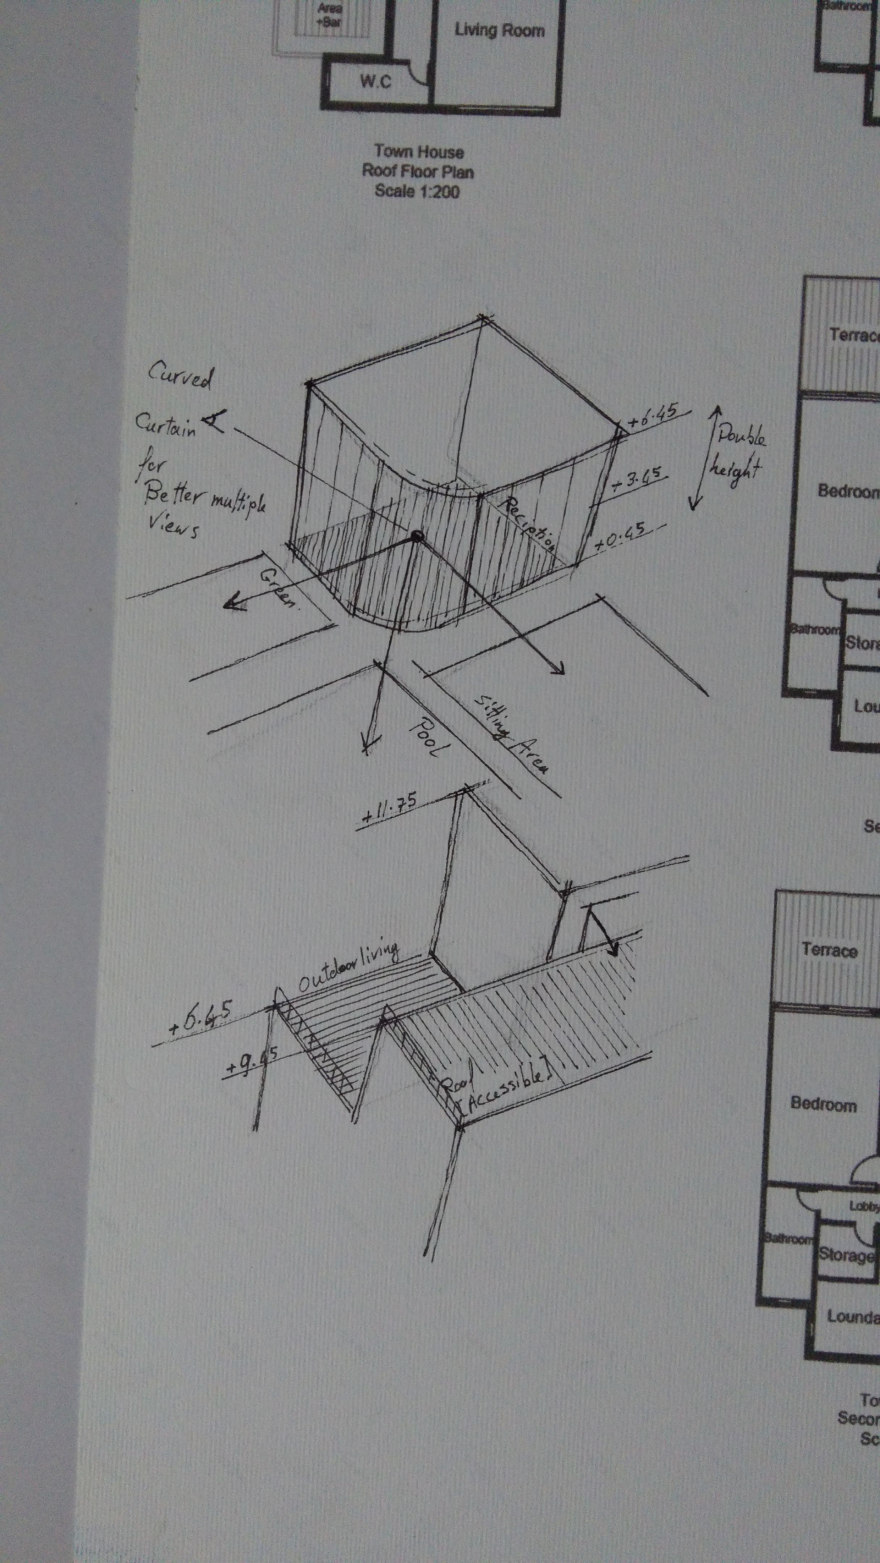 Area
+Bar
Living Room
W.C
Bathroom
Town House
Roof Floor Plan
Scale 1:200
Curved
Curtain
for
Better multiple
views
+6.45
+3.45
+0.45
Double
height
Reciption
Green
Pool
Sitting Area
Terrace
Bedroom
Bathroom
+11.75
Outdoor living
+6.45
+9.45
Roof
[Accessible]
Terrace
Bedroom
Lobby
Bathroom
Storage